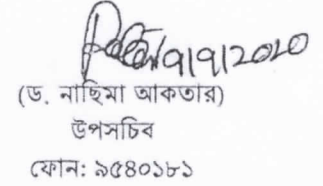 ৭/৭/২০২০
(ড. নাছিমা আকতার)
উপসচিব
ফোন: ৯৫৪০১৮১